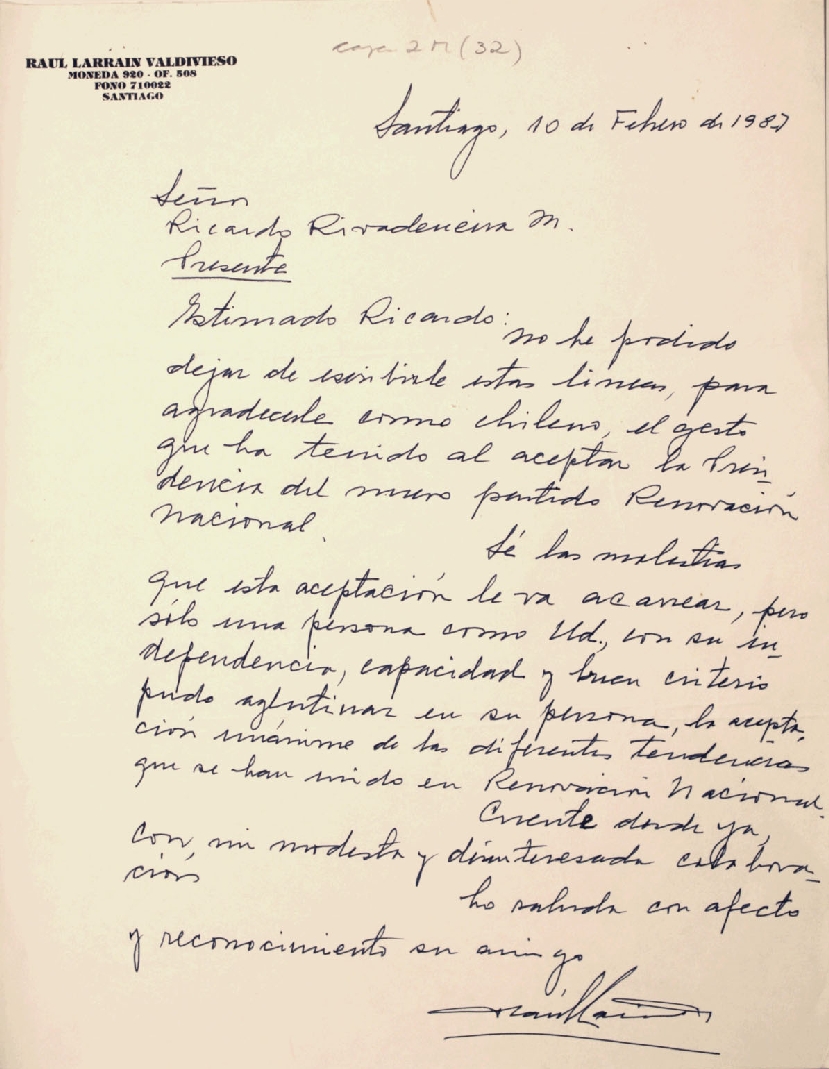 caja 2 M (32)
RAUL LARRAIN VALDIVIESO
MONEDA 920 - OF. 508
FONO 710022
SANTIAGO
Santiago, 10 de Febrero de 1987
Señor
Ricardo Rivadeneira M.
Presente
Estimado Ricardo:
no he podido
dejar de escribirle estas lineas, para
agradecerle como chileno, el gesto
que ha tenido al aceptar la Presi-
dencia del nuevo partido Renovación
Nacional.
Sé las molestias
que esta aceptación le va acarrear, pero
sólo una persona como Ud., con su in-
dependencia, capacidad y buen criterio
pudo aglutinar en su persona, la acepta-
ción unánime de las diferentes tendencias
que se han unido en Renovación Nacional.
Cuente desde ya,
con, mi modesta y desinteresada colabora-
ción
Lo saluda con afecto
y reconocimiento su amigo